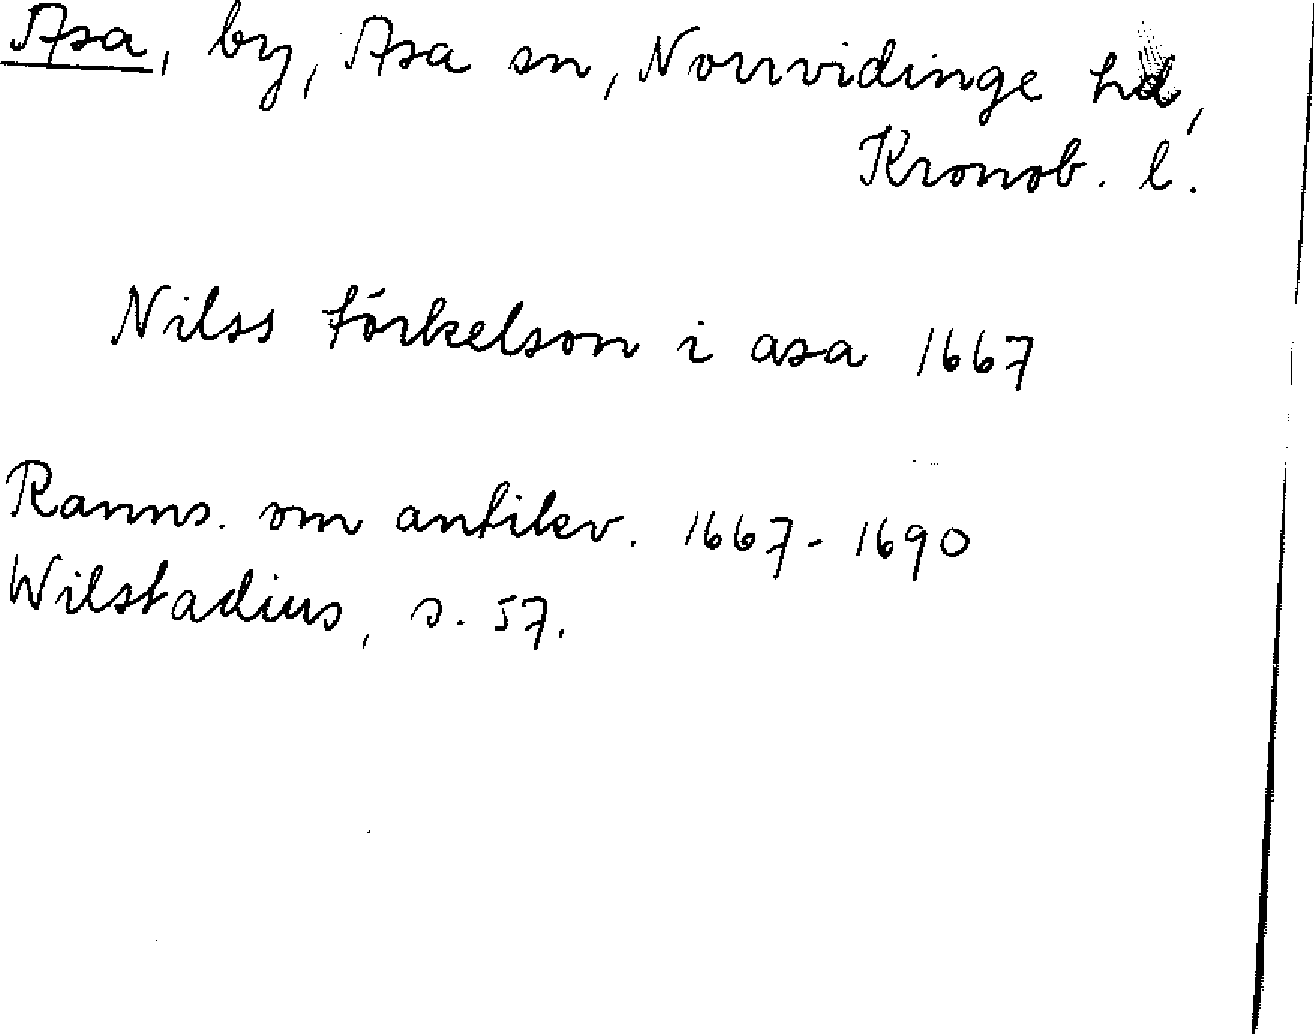 Asa, by, Asa sn, Norrvidinge hd,
Kronob. l.
Nilss törkelson i asa 1667
Ranns. om antikv. 1667-1690
Wilstadius, s. 57.